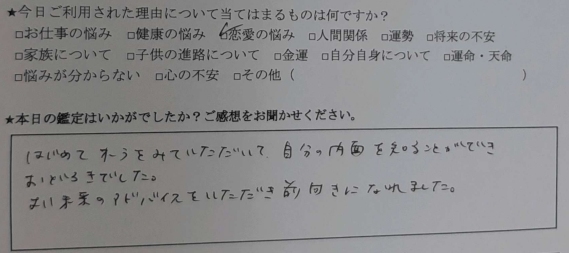 ★今日ご利用された理由について当てはまるものは何ですか?
□お仕事の悩み □健康の悩み □恋愛の悩み □人間関係 □運勢 □将来の不安
□家族について □子供の進路について □金運 □自分自身について □運命・天命
□悩みが分からない □心の不安 □その他( )
★本日の鑑定はいかがでしたか?ご感想をお聞かせください。
はじめて オーラをみていただいて、自分の内面を知ることができ
おどろきでした。
よい未来のアドバイスをいただき前向きになれました。